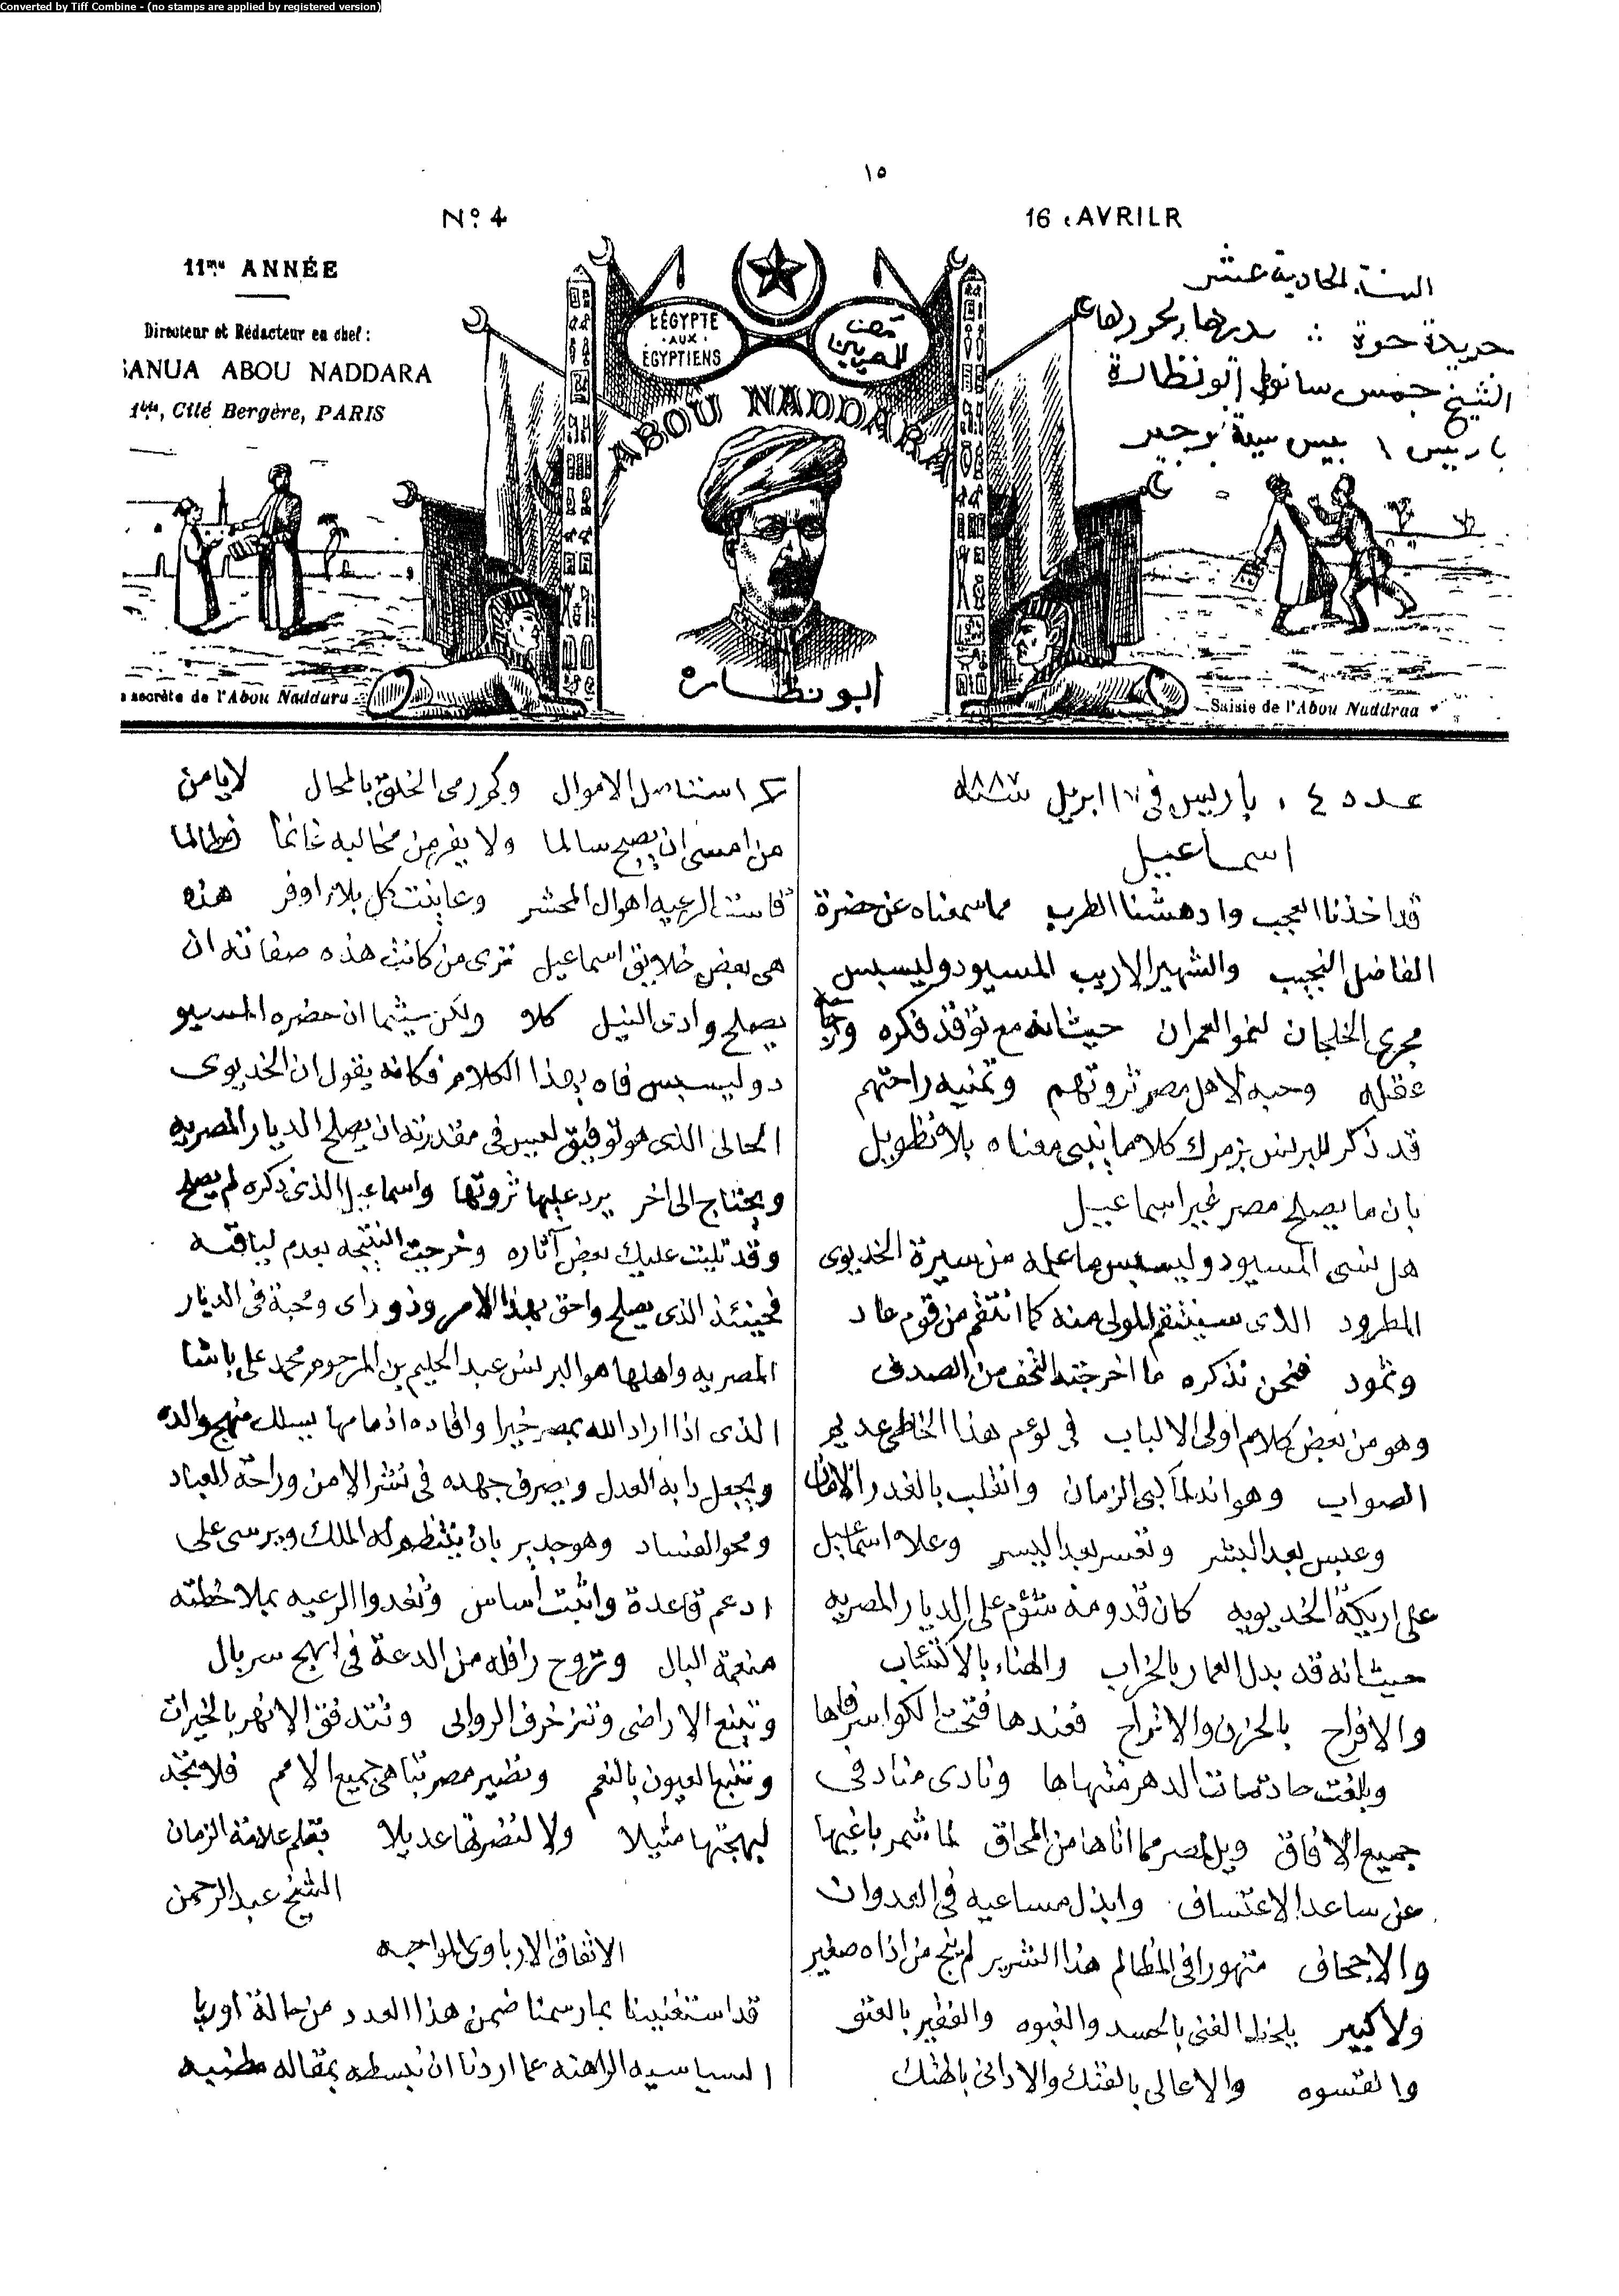 Converted by Tiff Combine - (no stamps are applied by registered version)
١٥
Nº 4
16 AVRILR
11me ANNÉE
Directeur et Rédacteur en chef :
SANUA ABOU NADDARA
Cité Bergère, PARIS
L'ÉGYPTE
AUX
ÉGYPTIENS
مصر
للمصريين
ABOU NADDARA
السنة الحادية عشر
جريدة حرة مديرها ومحررها
الشيخ جمس سانوا ابو نظارة
باريس ١ بيس سيتة برجير
ابو نظاره
secrète de l'Abou Naddara
Saisie de l'Abou Naddraa
عدد ٤ باريس في ١٦ ابريل سنة ١٨٨٧
اسماعيل
قد اخذنا العجب وادهشنا الطرب مما سمعناه عن حضرة
الفاضل النجيب والشهير الاريب المسيو دوليسبس
مجرى الخلجان لنمو العمران حيث انه مع توقد فكره
عقله وحبه لاهل مصر ثروتهم وتمنيه راحتهم
قد ذكر للبرنس بزمرك كلاما ينبى معناه بلا تطويل
بان ما يصلح مصر غير اسماعيل
هل نسى المسيو دوليسبس ما عمله من سيرة الخديوى
المطرود الذى سينتقم المولى منه كما انتقم من قوم عاد
وثمود فنحن نذكره ما اخرجته التحف من الصدف
وهو من بعض كلام اولى الالباب في لوم هذا الخاطى عديم
الصواب وهو انه لما الزمان وانقلب بالغدر
وعبس بعد البشر وتعسر بعد اليسر وعلا اسماعيل
على اريكة الخديويه كان قدومه شؤم على الديار المصريه
حيث انه قد بدل العمار بالخراب والهناء بالاكتئاب
والافراح بالحزن والاتراح فعندها فتحت الكواسر فاها
وبلغت حادثات الدهر منتهاها ونادى مناد فى
جميع الافاق ويل لمصر مما اتاها من المحاق لما شمر باغيها
عن ساعد الاعتساف وابذل مساعيه في العدوان
والاجحاف متهورا فى المظالم هذا الشرير لم ينج من اذاه صغير
ولا كبير الغنى بالحسد والفقير
والقسوه والاعالى بالفتك والادانى بالهتك
كم استناصل الاموال وكم رمى الخلق بالمحال لا يامن
من امسى ان يصبح سالما ولا يفر من مخالبه غانما فطالما
قاست الرعيه اهوال المحشر وعاينت كل بلاء اوفر هذه
هى بعض خلايق اسماعيل ترى من كانت هذه صفاته ان
يصلح وادى النيل كلا ولكن حيثما ان حضره المسيو
دوليسبس فاه بهذا الكلام فكانه يقول ان الخديوى
الحالى الذى هو توفيق ليس فى مقدرته ان يصلح الديار المصريه
ويحتاج الى اخر يرد عليها ثروتها واسماعيل الذى ذكره لم يصلح
وقد تليت عليك بعض آثاره وخرجت النتيجه بعدم لياقته
فحينئذ الذى يصلح واحق بهذا الامر وذو راى ومحبة فى الديار
المصريه واهلها هو البرنس عبد الحليم بن المرحوم محمد على باشا
الذى اذا اراد الله بمصر خيرا وافاده اذمامها يسلك منهج والده
ويجعل دابه العدل ويصرف جهده فى نشر الامن وراحة العباد
ومحو الفساد وهو جدير بان ينتظم له الملك ويرسى على
ادعم قاعدة واثبت أساس وتغدوا الرعيه بملاحظته
منعمة البال وتروح رافله من الدعة فى ابهج سربال
وتينع الاراضى وتتزخرف الروابى وتتدفق الانهر بالخيرات
العيون بالنعم وتصير مصر تباهى جميع الامم فلا تجد
لبهجتها مثيلا ولا لنضرتها عديلا بقلم علامة الزمان
الشيخ عبد الرحمن
الاتفاق الارباوى
قد استغنينا بما رسمنا ضمن هذا العدد من حالة اوربا
السياسيه الراهنه عما اردنا ان نبسطه بمقاله